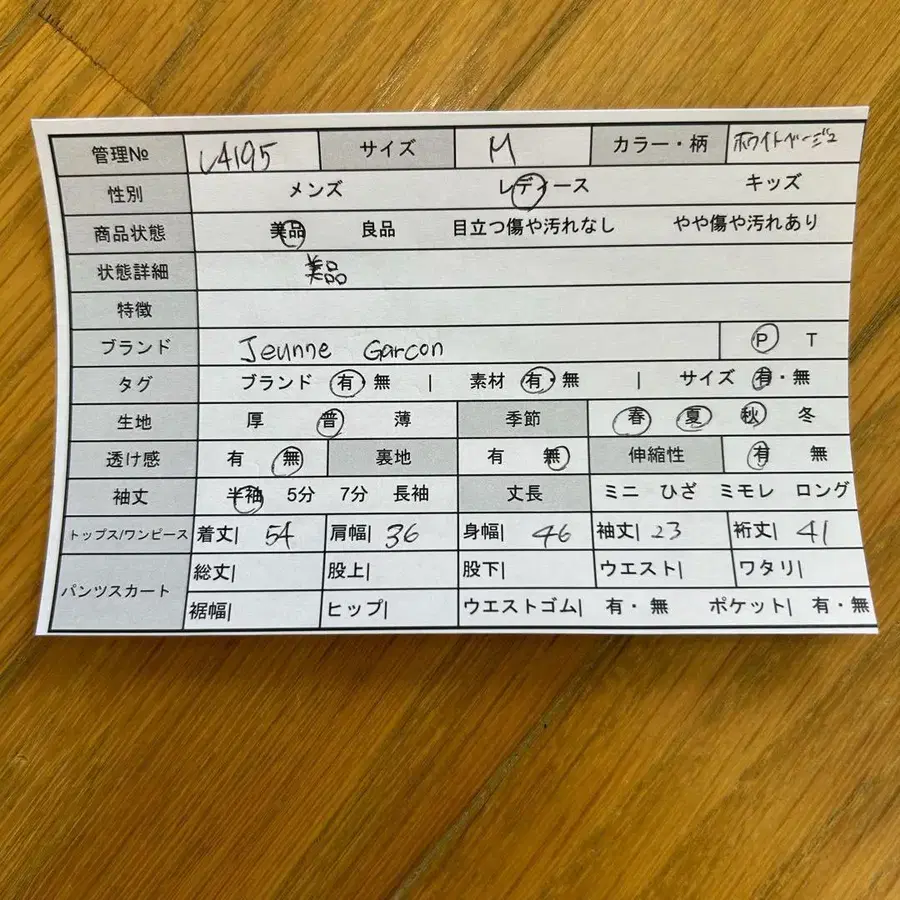 管理№ V4195 サイズ M カラー・柄 ホワイトベージュ
性別 メンズ レディース キッズ
商品状態 美品 良品 目立つ傷や汚れなし やや傷や汚れあり
状態詳細 美品
特徴
ブランド Jeunne Garcon P T
タグ ブランド 有・無 | 素材 有・無 | サイズ 有・無
生地 厚 普 薄 季節 春 夏 秋 冬
透け感 有 無 裏地 有 無 伸縮性 有 無
袖丈 半袖 5分 7分 長袖 丈長 ミニ ひざ ミモレ ロング
トップス/ワンピース 着丈| 54 肩幅| 36 身幅| 46 袖丈| 23 裄丈| 41
パンツスカート 総丈| 股上| 股下| ウエスト| ワタリ|
裾幅| ヒップ| ウエストゴム| 有・無 ポケット| 有・無